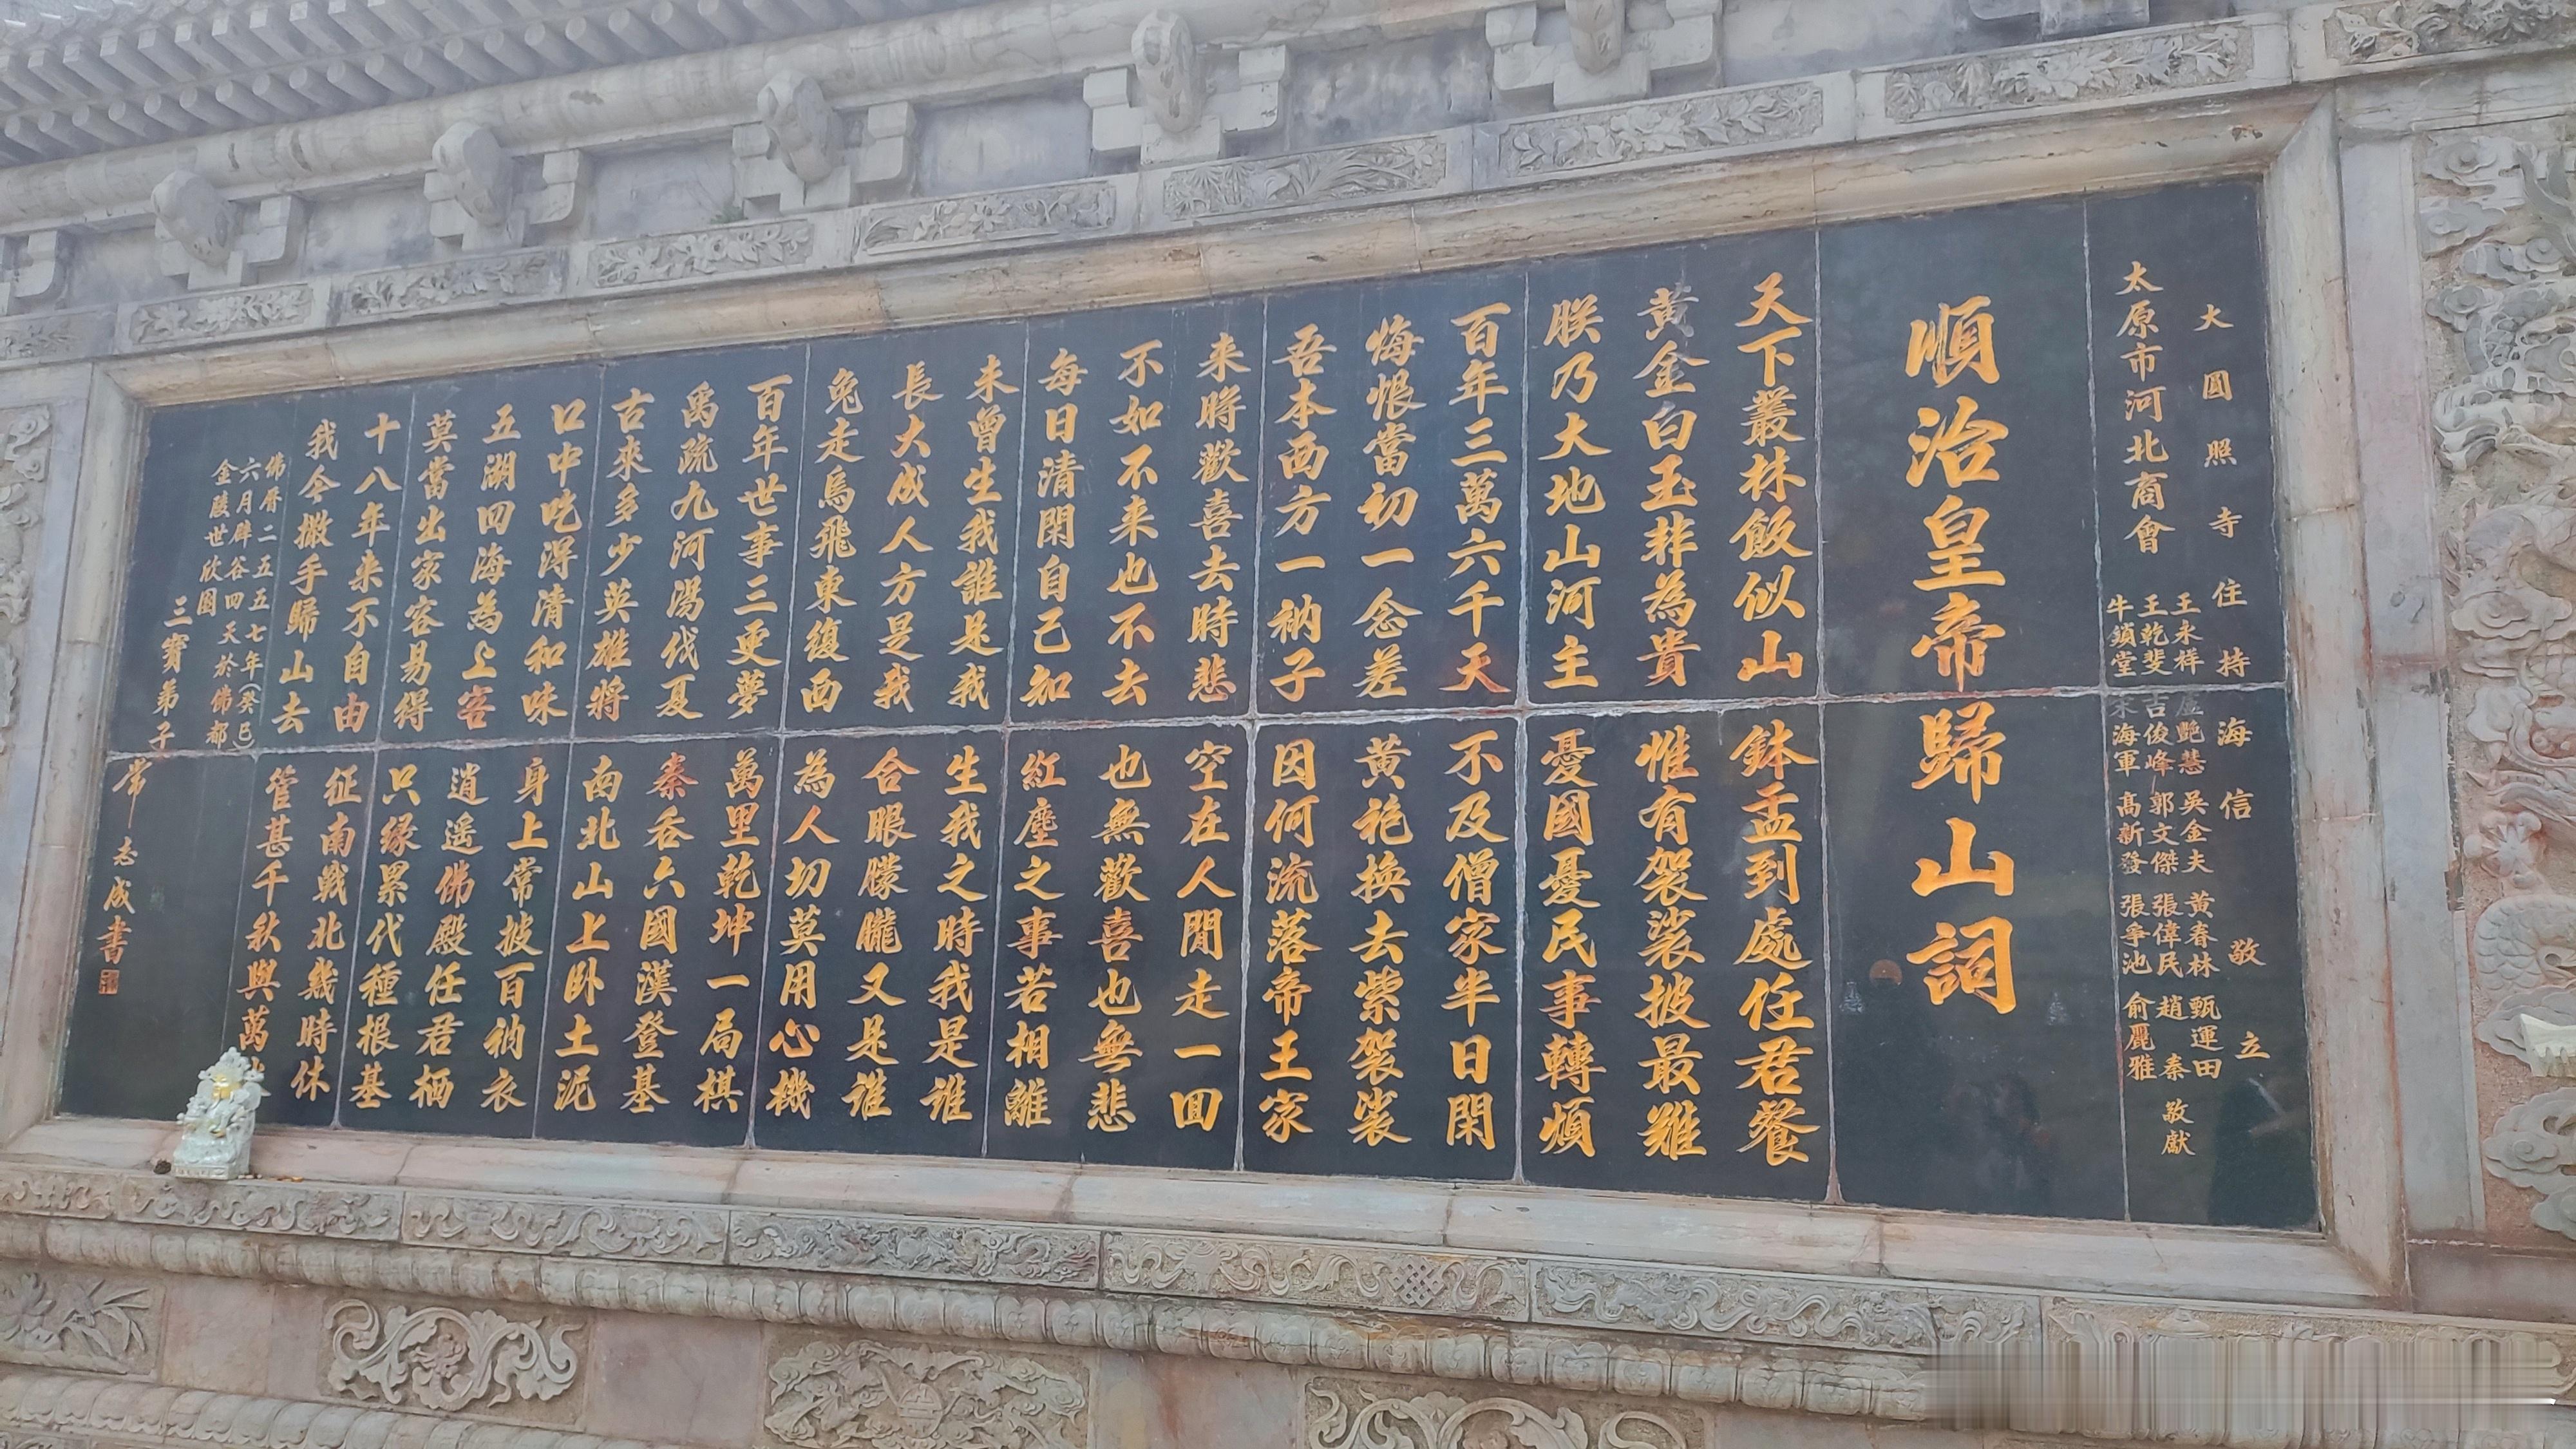 大圓照寺住持海信敬立
太原市河北商會
王永祥 盧艷慧 吳金夫 黃春林 甄運田
王乾斐 吉俊峰 郭文傑 張偉民 趙秦
牛鎖堂 海軍 高新發 張爭池 俞麗雅
敬獻
順治皇帝歸山詞
天下叢林飯似山 鉢盂到處任君餐
黃金白玉非為貴 惟有袈裟披最難
朕乃大地山河主 憂國憂民事轉煩
百年三萬六千天 不及僧家半日閑
悔恨當初一念差 黃袍換去紫袈裟
吾本西方一衲子 因何流落帝王家
来時歡喜去時悲 空在人間走一回
不如不来也不去 也無歡喜也無悲
每日清閑自己知 紅塵之事若相離
未曾生我誰是我 生我之時我是誰
長大成人方是我 合眼朦朧又是誰
兔走烏飛東復西 為人切莫用心機
百年世事三更夢 萬里乾坤一局棋
禹疏九河湯伐夏 秦吞六國漢登基
古來多少英雄將 南北山上卧土泥
口中吃淂清和味 身上常披百衲衣
五湖四海為上客 逍遥佛殿任君栖
莫當出家容易得 只缘累代種根基
十八年来不自由 征南戰北幾時休
我今撒手歸山去 管甚千秋與萬
佛曆二五五七年(癸巳)
六月辟谷四天於佛都
金陵世欣園
三寶弟子 常志成書